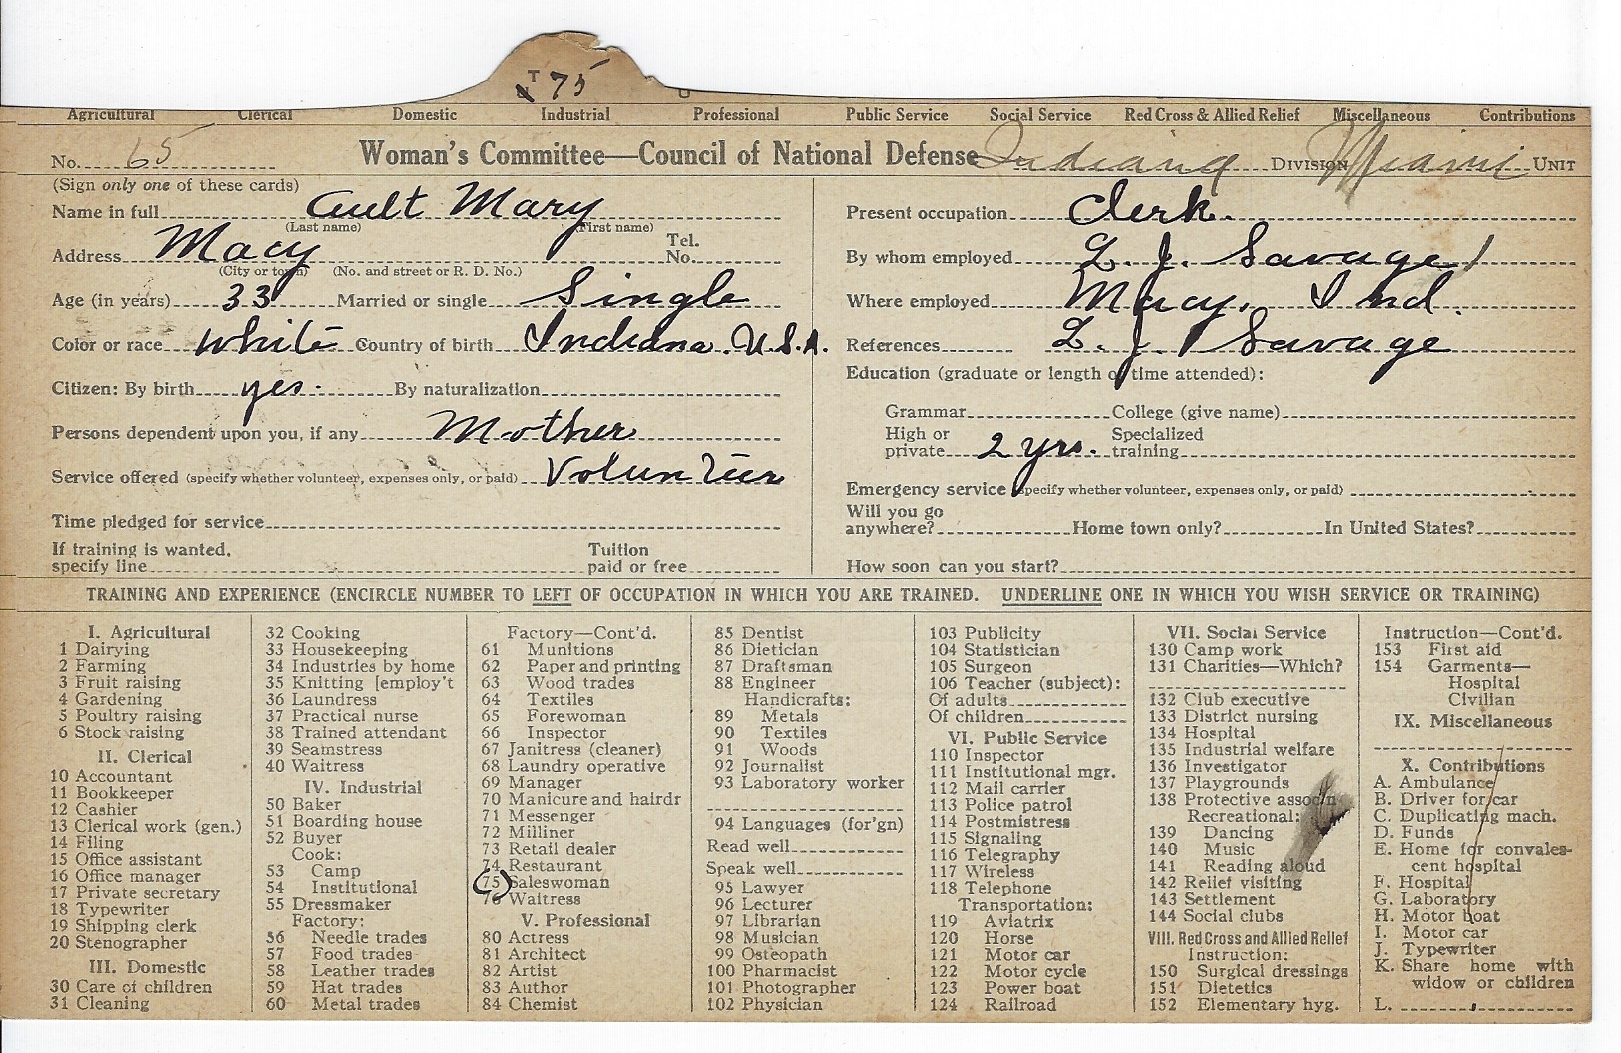 T 75
Agricultural Clerical Domestic Industrial Professional Public Service Social Service Red Cross & Allied Relief Miscellaneous Contributions
No. 65 Woman's Committee—Council of National Defense Indiana DIVISION Miami UNIT
(Sign only one of these cards)
Name in full Ault Mary
(Last name) (First name)
Address Macy Tel. No.
(City or town) (No. and street or R. D. No.)
Age (in years) 33 Married or single Single
Color or race White Country of birth Indiana. U.S.A.
Citizen: By birth yes. By naturalization
Persons dependent upon you, if any Mother
Service offered (specify whether volunteer, expenses only, or paid) Volunteer
Time pledged for service
If training is wanted, specify line Tuition paid or free
Present occupation Clerk.
By whom employed L. J. Savage
Where employed Macy, Ind.
References L. J. Savage
Education (graduate or length of time attended):
Grammar College (give name)
High or private 2 yrs. Specialized training
Emergency service (specify whether volunteer, expenses only, or paid)
Will you go anywhere? Home town only? In United States?
How soon can you start?
TRAINING AND EXPERIENCE (ENCIRCLE NUMBER TO LEFT OF OCCUPATION IN WHICH YOU ARE TRAINED. UNDERLINE ONE IN WHICH YOU WISH SERVICE OR TRAINING)
I. Agricultural
1 Dairying
2 Farming
3 Fruit raising
4 Gardening
5 Poultry raising
6 Stock raising
II. Clerical
10 Accountant
11 Bookkeeper
12 Cashier
13 Clerical work (gen.)
14 Filing
15 Office assistant
16 Office manager
17 Private secretary
18 Typewriter
19 Shipping clerk
20 Stenographer
III. Domestic
30 Care of children
31 Cleaning
32 Cooking
33 Housekeeping
34 Industries by home
35 Knitting [employ't
36 Laundress
37 Practical nurse
38 Trained attendant
39 Seamstress
40 Waitress
IV. Industrial
50 Baker
51 Boarding house
52 Buyer
Cook:
53 Camp
54 Institutional
55 Dressmaker
Factory:
56 Needle trades
57 Food trades
58 Leather trades
59 Hat trades
60 Metal trades
Factory—Cont'd.
61 Munitions
62 Paper and printing
63 Wood trades
64 Textiles
65 Forewoman
66 Inspector
67 Janitress (cleaner)
68 Laundry operative
69 Manager
70 Manicure and hairdr
71 Messenger
72 Milliner
73 Retail dealer
74 Restaurant
75 Saleswoman
76 Waitress
V. Professional
80 Actress
81 Architect
82 Artist
83 Author
84 Chemist
85 Dentist
86 Dietician
87 Draftsman
88 Engineer
Handicrafts:
89 Metals
90 Textiles
91 Woods
92 Journalist
93 Laboratory worker
94 Languages (for'gn)
Read well
Speak well
95 Lawyer
96 Lecturer
97 Librarian
98 Musician
99 Osteopath
100 Pharmacist
101 Photographer
102 Physician
103 Publicity
104 Statistician
105 Surgeon
106 Teacher (subject):
Of adults
Of children
VI. Public Service
110 Inspector
111 Institutional mgr.
112 Mail carrier
113 Police patrol
114 Postmistress
115 Signaling
116 Telegraphy
117 Wireless
118 Telephone
Transportation:
119 Aviatrix
120 Horse
121 Motor car
122 Motor cycle
123 Power boat
124 Railroad
VII. Social Service
130 Camp work
131 Charities—Which?
132 Club executive
133 District nursing
134 Hospital
135 Industrial welfare
136 Investigator
137 Playgrounds
138 Protective assoc'n
Recreational:
139 Dancing
140 Music
141 Reading aloud
142 Relief visiting
143 Settlement
144 Social clubs
VIII. Red Cross and Allied Relief
Instruction:
150 Surgical dressings
151 Dietetics
152 Elementary hyg.
Instruction—Cont'd.
153 First aid
154 Garments—
Hospital
Civilian
IX. Miscellaneous
X. Contributions
A. Ambulance
B. Driver for car
C. Duplicating mach.
D. Funds
E. Home for convales-
cent hospital
F. Hospital
G. Laboratory
H. Motor boat
I. Motor car
J. Typewriter
K. Share home with
widow or children
L.